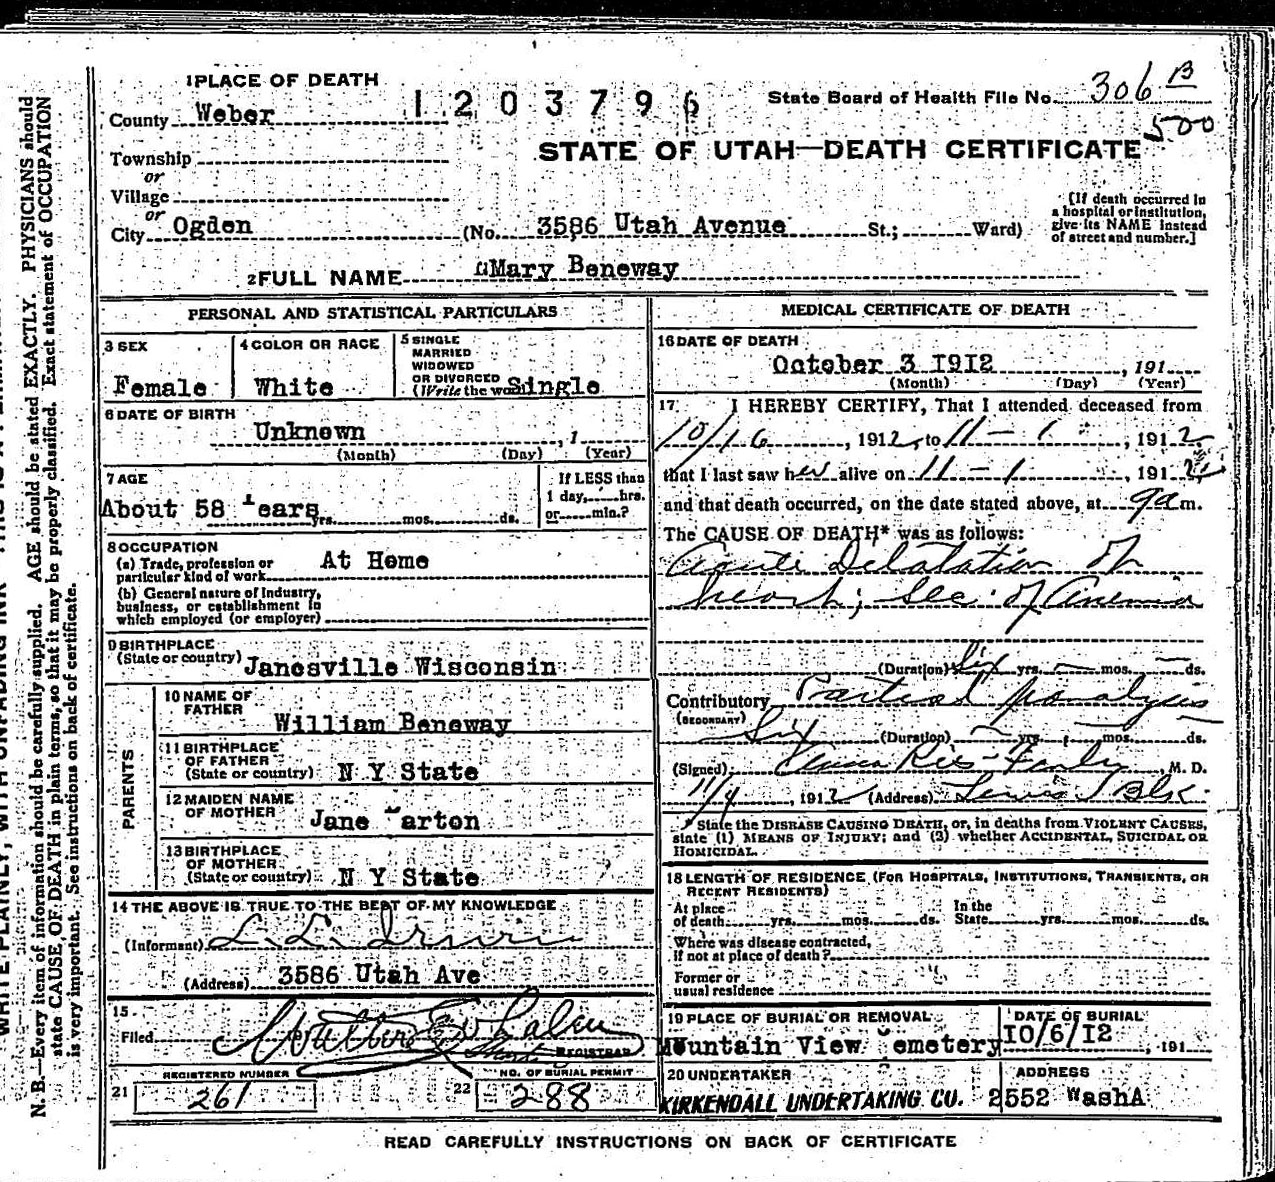 1 PLACE OF DEATH
County Weber
1203796
State Board of Health File No. 306 B
500
STATE OF UTAH—DEATH CERTIFICATE
Township
or
Village
or
City Ogden (No. 3586 Utah Avenue St.; Ward)
[If death occurred in
a hospital or institution,
give its NAME instead
of street and number.]
2 FULL NAME Mary Beneway
PERSONAL AND STATISTICAL PARTICULARS
3 SEX
Female
4 COLOR OR RACE
White
5 SINGLE
MARRIED
WIDOWED
OR DIVORCED
(Write the word) Single
6 DATE OF BIRTH
Unknown , 1
(Month) (Day) (Year)
7 AGE
About 58 Years
yrs. mos. ds.
If LESS than
1 day, hrs.
or min.?
8 OCCUPATION
(a) Trade, profession or
particular kind of work At Home
(b) General nature of industry,
business, or establishment in
which employed (or employer)
9 BIRTHPLACE
(State or country) Janesville Wisconsin
PARENTS
10 NAME OF
FATHER
William Beneway
11 BIRTHPLACE
OF FATHER
(State or country) N Y State
12 MAIDEN NAME
OF MOTHER
Jane arton
13 BIRTHPLACE
OF MOTHER
(State or country) N Y State
14 THE ABOVE IS TRUE TO THE BEST OF MY KNOWLEDGE
(Informant)
(Address) 3586 Utah Ave
15
Filed
REGISTRAR
REGISTERED NUMBER
21 261
NO. OF BURIAL PERMIT
22 288
MEDICAL CERTIFICATE OF DEATH
16 DATE OF DEATH
October 3 1912 , 191
(Month) (Day) (Year)
17 I HEREBY CERTIFY, That I attended deceased from
10/16 , 1912, to 11-1 , 1912
that I last saw her alive on 11-1 , 1912
and that death occurred, on the date stated above, at 9 a m.
The CAUSE OF DEATH* was as follows:
Acute Delatation of
heart; Sec. of Anemia
(Duration) Six yrs. — mos. — ds.
Contributory Partial Paralysis
(SECONDARY)
Six (Duration) — yrs. mos. ds.
(Signed) M. D.
11/4 , 1912 (Address) Lewis Blk.
*State the DISEASE CAUSING DEATH, or, in deaths from VIOLENT CAUSES,
state (1) MEANS OF INJURY; and (3) whether ACCIDENTAL, SUICIDAL OR
HOMICIDAL.
18 LENGTH OF RESIDENCE (FOR HOSPITALS, INSTITUTIONS, TRANSIENTS, OR
RECENT RESIDENTS)
At place
of death yrs. mos. ds.
In the
State yrs. mos. ds.
Where was disease contracted,
If not at place of death?
Former or
usual residence
19 PLACE OF BURIAL OR REMOVAL
Mountain View emetery
DATE OF BURIAL
10/6/12 , 191
20 UNDERTAKER
KIRKENDALL UNDERTAKING CO.
ADDRESS
2552 WashA
READ CAREFULLY INSTRUCTIONS ON BACK OF CERTIFICATE
N. B.—Every item of information should be carefully supplied. AGE should be stated EXACTLY. PHYSICIANS should
state CAUSE OF DEATH in plain terms, so that it may be properly classified. Exact statement of OCCUPATION
is very important. See instructions on back of certificate.